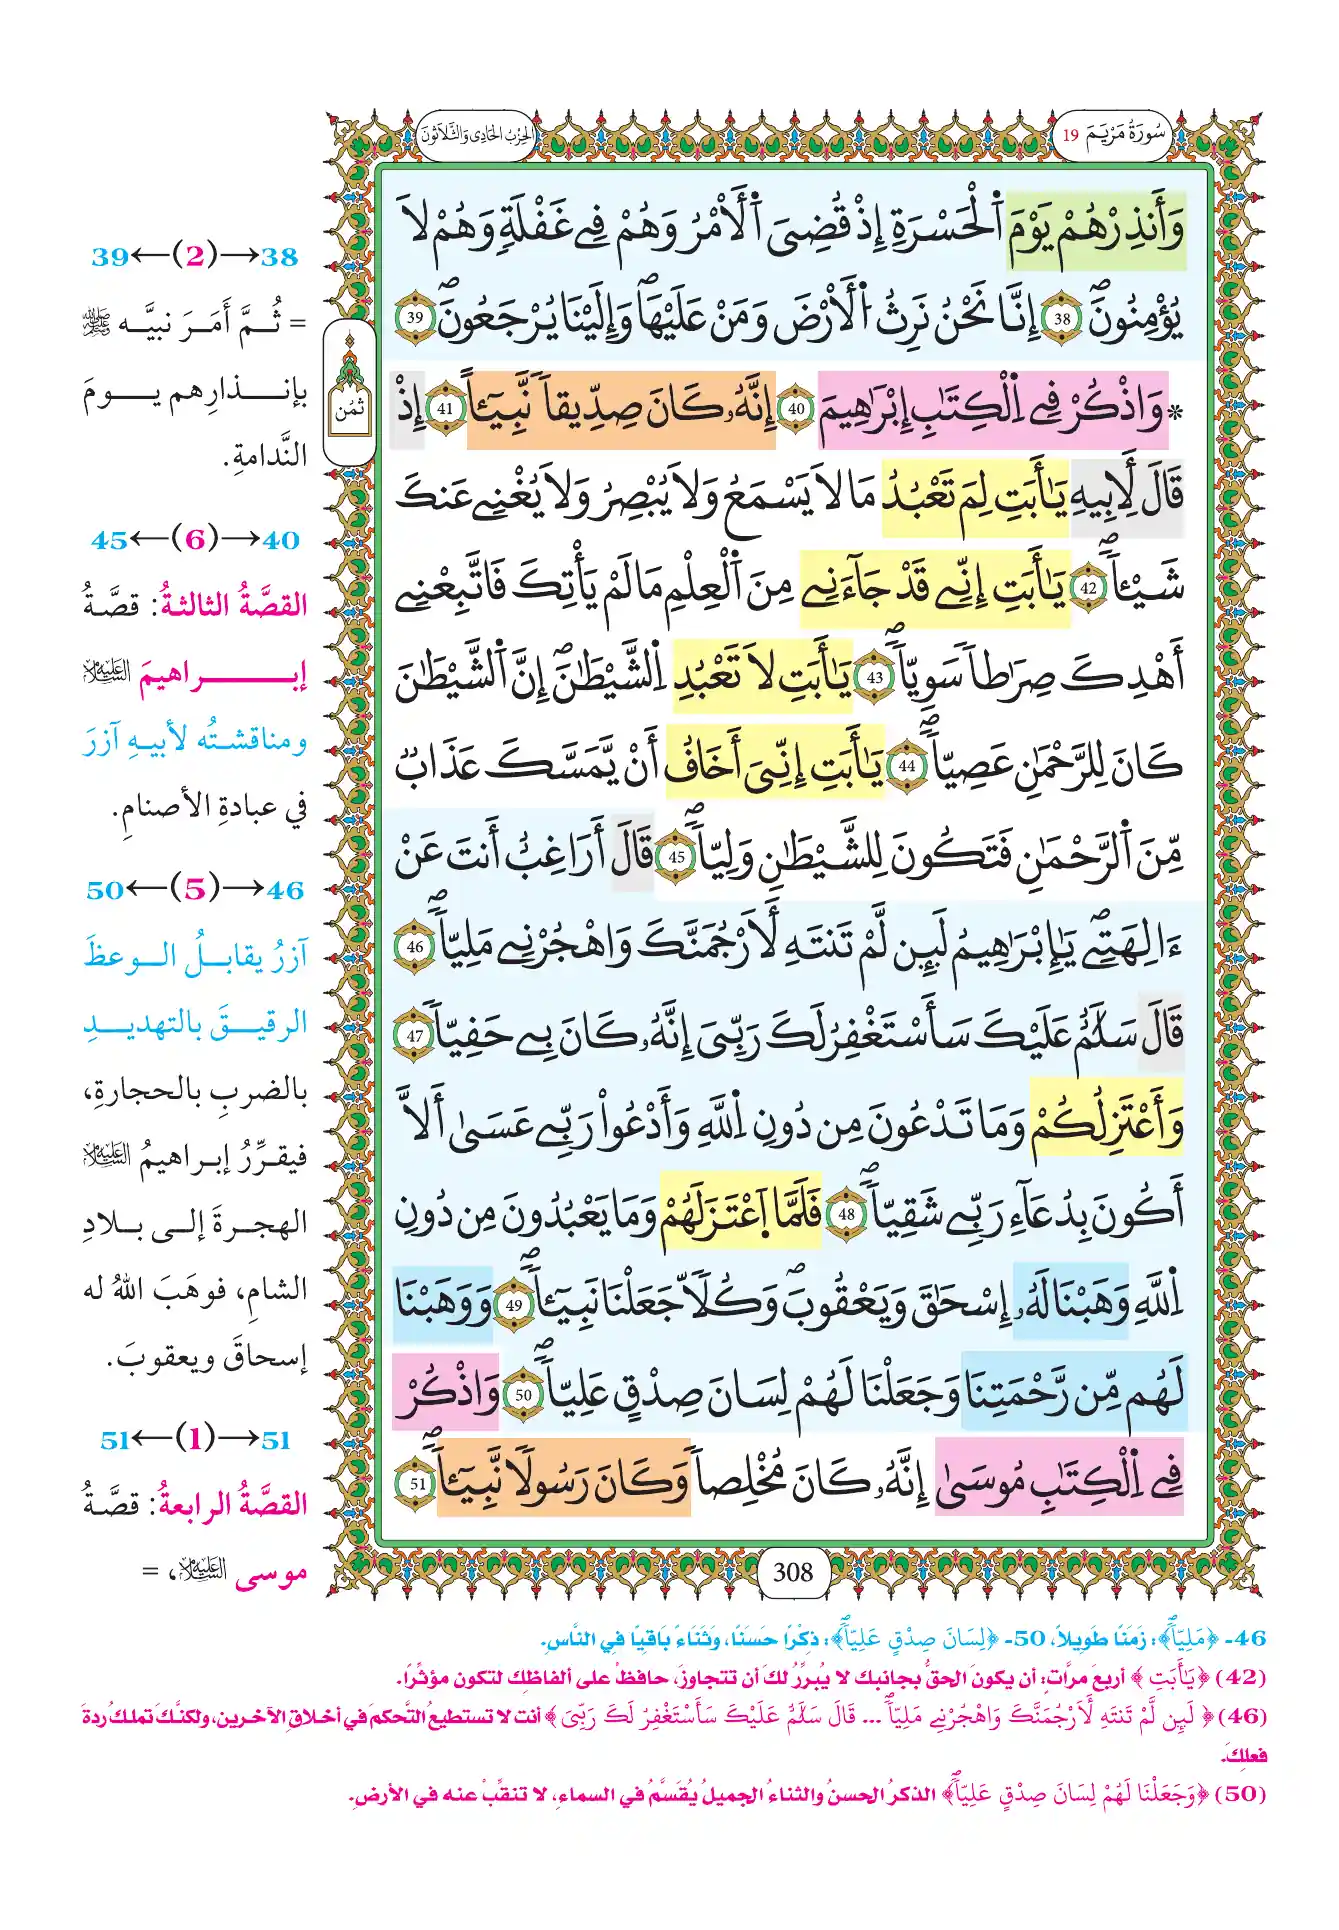 سُورَةُ مَرْيَمَ 19
الحِزْبُ الحَادِي وَالثَّلَاثُونَ
وَأَنذِرْهُمْ يَوْمَ اَ۬لْحَسْرَةِ إِذْ قُضِيَ اَ۬لْأَمْرُ وَهُمْ فِي غَفْلَةٍ وَهُمْ لَا
يُؤْمِنُونَۖ 38 إِنَّا نَحْنُ نَرِثُ اُ۬لْأَرْضَ وَمَنْ عَلَيْهَاۖ وَإِلَيْنَا يُرْجَعُونَۖ 39
* وَاذْكُرْ فِي اِ۬لْكِتَٰبِ إِبْرَٰهِيمَ 40 إِنَّهُۥ كَانَ صِدِّيقاٗ نَّبِيٓـٔاً 41 إِذْ
قَالَ لِأَبِيهِ يَٰأَبَتِ لِمَ تَعْبُدُ مَا لَا يَسْمَعُ وَلَا يُبْصِرُ وَلَا يُغْنِي عَنكَ
شَيْـٔاٗۖ 42 يَٰأَبَتِ إِنِّي قَدْ جَآءَنِي مِنَ اَ۬لْعِلْمِ مَا لَمْ يَأْتِكَ فَاتَّبِعْنِي
أَهْدِكَ صِرَٰطاٗ سَوِيّاٗۖ 43 يَٰأَبَتِ لَا تَعْبُدِ اِ۬لشَّيْطَٰنَۖ إِنَّ اَ۬لشَّيْطَٰنَ
كَانَ لِلرَّحْمَٰنِ عَصِيّاٗۖ 44 يَٰأَبَتِ إِنِّيَ أَخَافُ أَنْ يَّمَسَّكَ عَذَابٌ
مِّنَ اَ۬لرَّحْمَٰنِ فَتَكُونَ لِلشَّيْطَٰنِ وَلِيّاٗۖ 45 قَالَ أَرَاغِبٌ أَنتَ عَنْ
ءَالِهَتِيۖ يَٰإِبْرَٰهِيمُ لَئِن لَّمْ تَنتَهِ لَأَرْجُمَنَّكَ وَاهْجُرْنِي مَلِيّاٗۖ 46
قَالَ سَلَٰمٌ عَلَيْكَ سَأَسْتَغْفِرُ لَكَ رَبِّيَ إِنَّهُۥ كَانَ بِي حَفِيّاٗۖ 47
وَأَعْتَزِلُكُمْ وَمَا تَدْعُونَ مِن دُونِ اِ۬للَّهِ وَأَدْعُواْ رَبِّي عَسَىٰ أَلَّا
أَكُونَ بِدُعَآءِ رَبِّي شَقِيّاٗۖ 48 فَلَمَّا اَ۪عْتَزَلَهُمْ وَمَا يَعْبُدُونَ مِن دُونِ
اِ۬للَّهِ وَهَبْنَا لَهُۥ إِسْحَٰقَ وَيَعْقُوبَۖ وَكُلّاٗ جَعَلْنَا نَبِيٓـٔاٗۖ 49 وَوَهَبْنَا
لَهُم مِّن رَّحْمَتِنَا وَجَعَلْنَا لَهُمْ لِسَانَ صِدْقٍ عَلِيّاٗۖ 50 وَاذْكُرْ
فِي اِ۬لْكِتَٰبِ مُوسَىٰ إِنَّهُۥ كَانَ مُخْلِصاٗ وَكَانَ رَسُولاٗ نَّبِيٓـٔاٗۖ 51
ثُمُن
308
38→(2)←39
= ثُمَّ أَمَرَ نبيَّه ﷺ
بإنذارِهم يومَ
النَّدامةِ.
40→(6)←45
القصَّةُ الثالثةُ: قصَّةُ
إبراهيمَ عليه السلام
ومناقشتُه لأبيهِ آزرَ
في عبادةِ الأصنامِ.
46→(5)←50
آزرُ يقابلُ الوعظَ
الرقيقَ بالتهديدِ
بالضربِ بالحجارةِ،
فيقرِّرُ إبراهيمُ عليه السلام
الهجرةَ إلى بلادِ
الشامِ، فوهَبَ اللهُ له
إسحاقَ ويعقوبَ.
51→(1)←51
القصَّةُ الرابعةُ: قصَّةُ
موسى عليه السلام، =
46- ﴿مَلِيّاٗۖ﴾: زَمَنًا طَوِيلاً، 50- ﴿لِسَانَ صِدْقٍ عَلِيّاٗۖ﴾: ذِكْرًا حَسَنًا، وَثَنَاءً بَاقِيًا فِي النَّاسِ.
(42) ﴿يَٰأَبَتِ﴾ أربعَ مرَّاتٍ: أن يكونَ الحقُّ بجانبك لا يُبررُ لكَ أن تتجاوزَ، حافظْ على ألفاظِك لتكون مؤثِّرًا.
(46) ﴿لَئِن لَّمْ تَنتَهِ لَأَرْجُمَنَّكَ وَاهْجُرْنِي مَلِيّاٗۖ ... قَالَ سَلَٰمٌ عَلَيْكَ سَأَسْتَغْفِرُ لَكَ رَبِّيَ﴾ أنت لا تستطيعُ التَّحكمَ في أخلاقِ الآخرين، ولكنَّكَ تملكُ ردةَ
فعلِكَ.
(50) ﴿وَجَعَلْنَا لَهُمْ لِسَانَ صِدْقٍ عَلِيّاٗۖ﴾ الذكرُ الحسنُ والثناءُ الجميلُ يُقسَّمُ في السماءِ، لا تنقِّبْ عنه في الأرضِ.